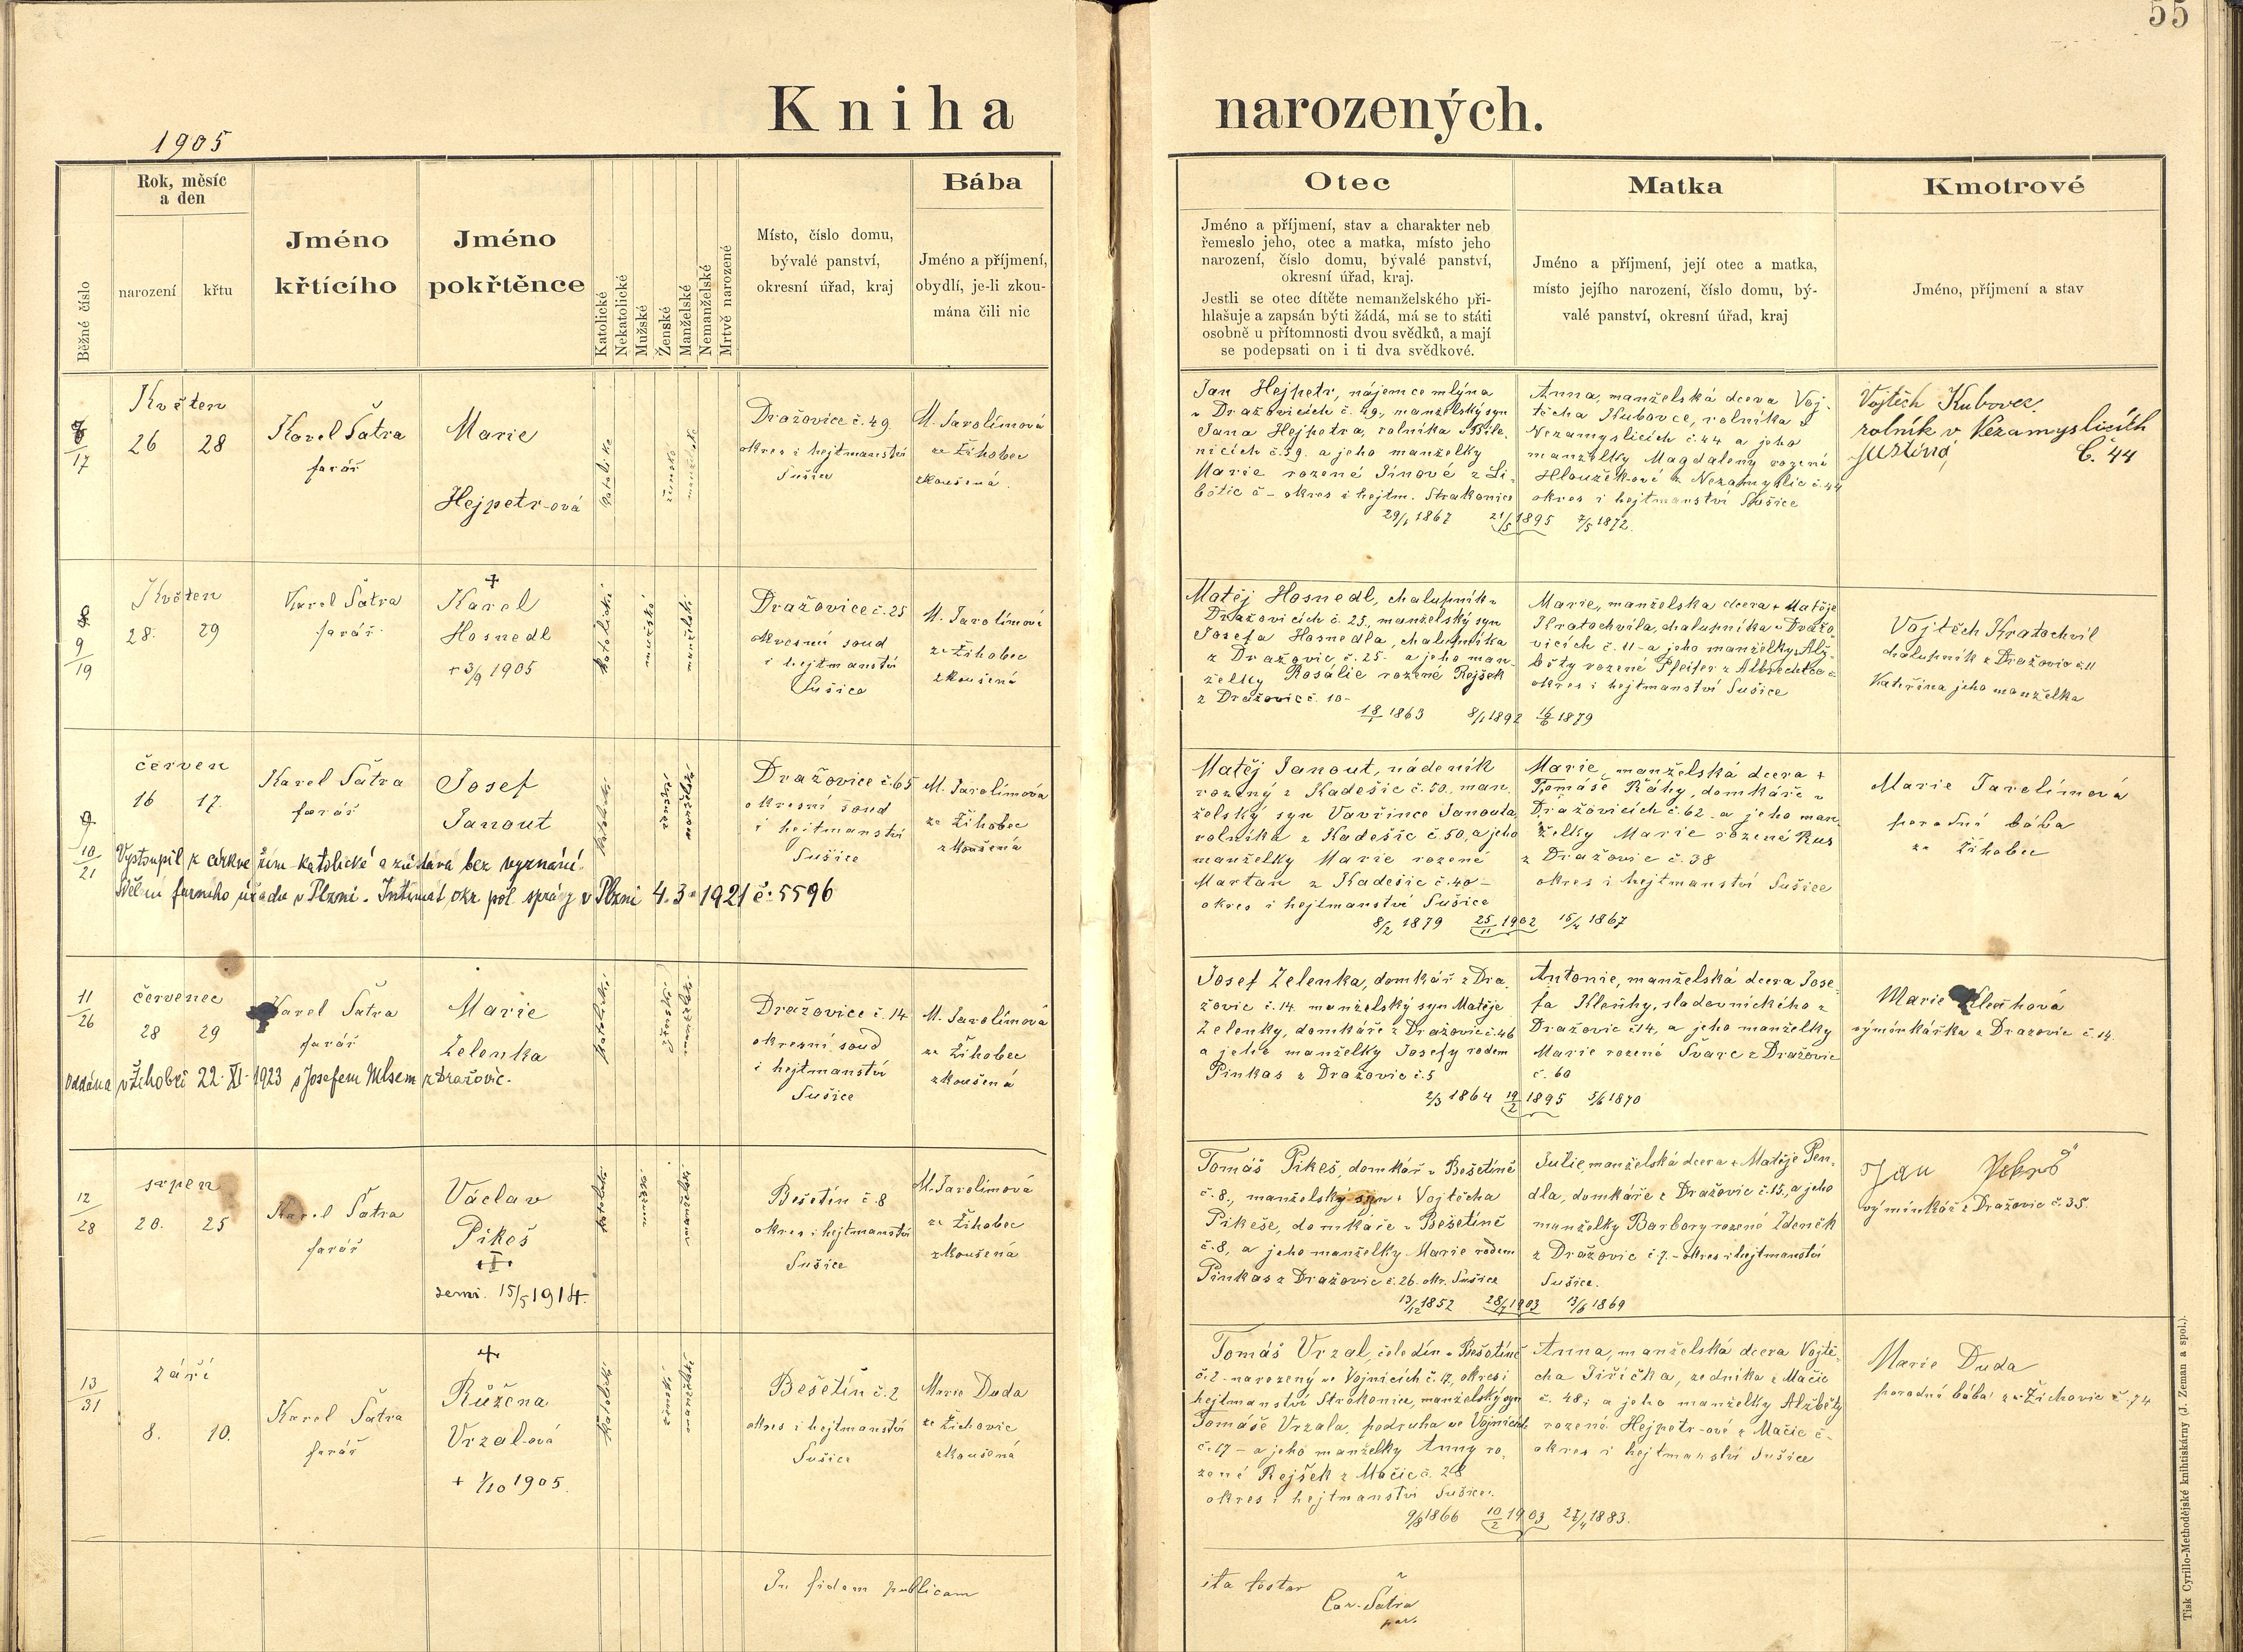 55
Kniha narozených.
1905
Běžné číslo
Rok, měsíc
a den
narození
křtu
Jméno
křtícího
Jméno
pokřtěnce
Katolické
Nekatolické
Mužské
Ženské
Manželské
Nemanželské
Mrtvě narozené
Místo, číslo domu,
bývalé panství,
okresní úřad, kraj
Bába
Jméno a příjmení,
obydlí, je-li zkou-
mána čili nic
Otec
Jméno a příjmení, stav a charakter neb
řemeslo jeho, otec a matka, místo jeho
narození, číslo domu, bývalé panství,
okresní úřad, kraj.
Jestli se otec dítěte nemanželského při-
hlašuje a zapsán býti žádá, má se to státi
osobně u přítomnosti dvou svědků, a mají
se podepsati on i ti dva svědkové.
Matka
Jméno a příjmení, její otec a matka,
místo jejího narození, číslo domu, bý-
valé panství, okresní úřad, kraj
Kmotrové
Jméno, příjmení a stav
17
Květen
26 28
Karel Šatra
farář
Marie
Hejpetr-ová
katolické
ženské
manželské
Dražovice č. 49
okres i hejtmanství
Sušice
M. Jarolímová
ze Žihobec
zkoušená.
Jan Hejpetr, nájemce mlýna
v Dražovicích č. 49, manželský syn
Jana Hejpetra, rolníka v Běle-
nicích č. 39. a jeho manželky
Marie rozené Jínové z Li-
bětic č - okres i hejtm. Strakonice
29/1 1867 21/5 1895 7/5 1872.
Anna, manželská dcera Voj-
těcha Kubovce, rolníka v
Nezamyslicích č. 44 a jeho
manželky Magdaleny rozené
Hloužek-ové z Nezamyslic č. 44
okres i hejtmanství Sušice
Vojtěch Kubovec,
rolník v Nezamyslicích
Justina č. 44
8
9
19
Květen
28. 29
Karel Šatra
farář.
+
Karel
Hosnedl
+ 3/9 1905
katolické
mužské
manželské
Dražovice č. 25
okresní soud
i hejtmanství
Sušice
M. Jarolímová
ze Žihobec
zkoušená
Matěj Hosnedl, chalupník v
Dražovicích č. 25, manželský syn
Josefa Hosnedla, chalupníka
z Dražovic č. 25. a jeho man-
želky Rosálie rozené Rejšek
z Dražovic č. 10-
18/1 1863 8/1 1892 16/6 1879
Marie, manželská dcera + Matěje
Kratochvíla, chalupníka v Dražo-
vicích č. 11 - a jeho manželky Alž-
běty rozené Pfeifer z Albrechtce č
okres i hejtmanství Sušice
Vojtěch Kratochvíl
chalupník z Dražovic č. 11
Kateřina jeho manželka
9
10
21
červen
16 17.
Karel Šatra
farář
Josef
Janout
katolické
ženské
manželské
Dražovice č. 65
okresní soud
i hejtmanství
Sušice
M. Jarolímová
ze Žihobec
zkoušená
Vystoupil z církve řím-katolické a zůstává bez vyznání.
Sdělení farního úřadu v Plzni. Intimát okr. pol. správy v Plzni 4. 3. 1921 č. 5596
Matěj Janout, nádeník
rozený z Kadešic č. 50, man-
želský syn Vavřince Janouta,
rolníka z Kadešic č. 50, a jeho
manželky Marie rozené
Martan z Kadešic č. 40 -
okres i hejtmanství Sušice
8/2 1879 25/11 1902 15/4 1867
Marie, manželská dcera +
Tomáše Ráhy, domkáře v
Dražovicích č. 62 a jeho man-
želky Marie rozené Rus
z Dražovic č. 38
okres i hejtmanství Sušice
Marie Jarolímová
porodní bába
ze Žihobec
11
26
červenec
28 29
Karel Šatra
farář
Marie
Zelenka
katolické
ženské
manželské
Dražovice č. 14
okresní soud
i hejtmanství
Sušice
M. Jarolímová
ze Žihobec
zkoušená
oddána v Žihobci 22. XI. 1923 s Josefem Mlsem z Dražovic.
Josef Zelenka, domkář z Dra-
žovic č. 14 manželský syn Matěje
Zelenky, domkáře z Dražovic č. 46
a jeho manželky Josefy rodem
Pinkas z Dražovic č. 5
2/3 1864 19/2 1895 5/6 1870
Antonie, manželská dcera Jose-
fa Kleňhy, sladovnického z
Dražovic č 14, a jeho manželky
Marie rozené Švarc z Dražovic
č. 60
Marie Kleňhová
výminkářka z Dražovic č. 14.
12
28
srpen
20. 25
Karel Šatra
farář
Václav
Pikeš
+I+
zemř. 15/5 1914.
katolické
mužské
manželské
Bešetín č. 8
okres i hejtmanství
Sušice
M. Jarolímová
ze Žihobec
zkoušená
Tomáš Pikeš, domkář v Bešetíně
č. 8, manželský syn + Vojtěcha
Pikeše, domkáře v Bešetíně
č. 8, a jeho manželky Marie rodem
Pinkas z Dražovic č. 26. okr. Sušice
13/12 1852 28/4 1903 13/6 1869
Julie, manželská dcera + Matěje Pen-
dla, domkáře z Dražovic č. 15, a jeho
manželky Barbory rozené Zdeněk
z Dražovic č. 7. - okres i hejtmanství
Sušice.
Jan
výminkář z Dražovic č. 35.
13
31
září
8. 10.
Karel Šatra
farář
+
Růžena
Vrzal-ová
+ 1/10 1905.
katolické
ženské
manželské
Bešetín č. 2
okres i hejtmanství
Sušice
Marie Duda
ze Žichovic
zkoušená
Tomáš Vrzal, čeledín v Bešetíně
č. 2 - narozený ve Vojnicích č. 17, okres i
hejtmanství Strakonice, manželský syn
Tomáše Vrzala, podruha ve Vojnicích
č. 17 - a jeho manželky Anny ro-
zené Rejšek z Mačic č. 28
okres i hejtmanství Sušice.
9/8 1866 10/2 1903 27/4 1883.
Anna, manželská dcera Vojtě-
cha Jiřička, zedníka z Mačic
č. 48; a jeho manželky Alžběty
rozené Hejpetr-ové z Mačic č-
okres i hejtmanství Sušice
Marie Duda
porodná bába ze Žichovic č. 74
In fidem publicam
ita testor
Car. Šatra
par.
Tisk Cyrillo-Methodějské knihtiskárny (J. Zeman a spol.).